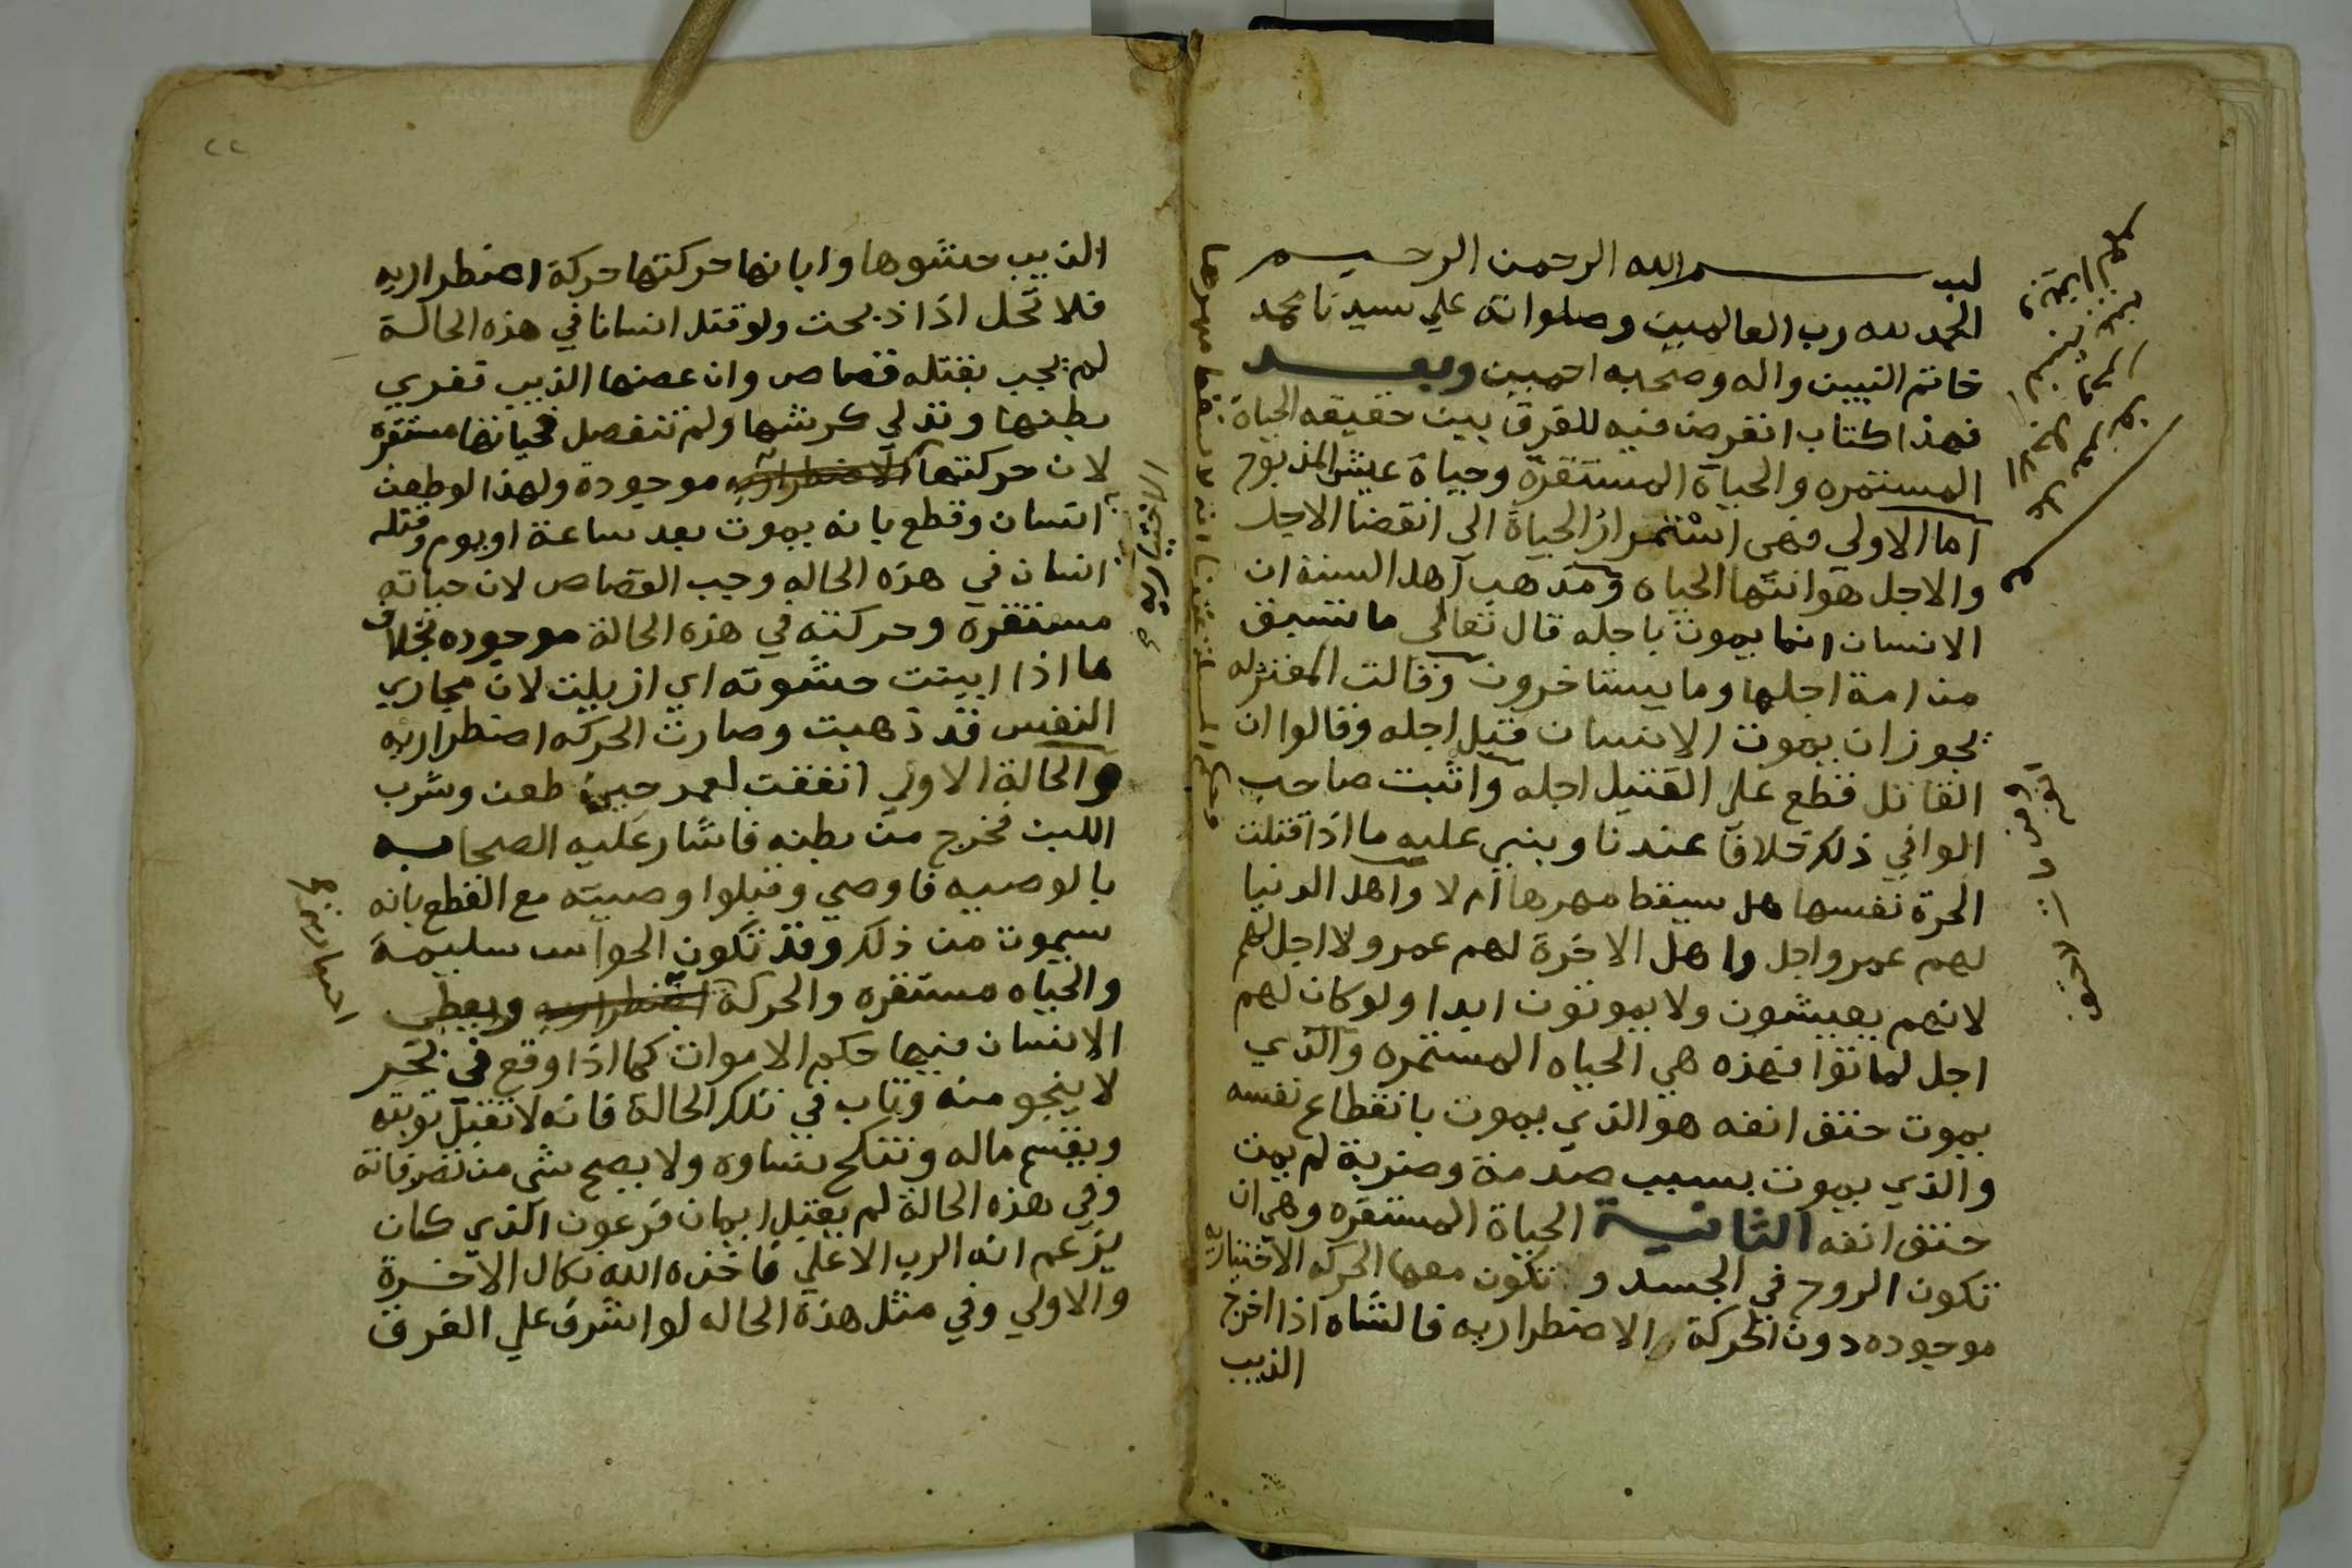 بسم الله الرحمن الرحيم
الحمد لله رب العالمين وصلواته علي سيدنا محمد
خاتم النبيين واله وصحبه اجمعين وبعد
فهذا كتاب اتعرض فيه للفرق بين حقيقه الحياة
المستمره والحياة المستقرة وحياة عيش المذبوح
اما الاولي فهي استمرار الحياة الي انقضا الاجل
والاجل هو انتها الحياه ومذهب اهل السنة ان
الانسان انما يموت باجله قال تعالي ما تسبق
من امة اجلها وما يستاخرون وقالت المعتزله
يجوز ان يموت الانسان قبل اجله وقالوا ان
القاتل قطع علي القتيل اجله واثبت صاحب
الوافي ذلك خلافا عندنا وبني عليه ما اذا قتلت
الحرة نفسها هل سيقط مهرها ام لا واهل الدنيا
لهم عمر واجل واهل الاخرة لهم عمر ولا اجل لهم
لانهم يعيشون ولا يموتون ابدا ولو كان لهم
اجل لماتوا فهذه هي الحياه المستمره والذي
يموت حتف انفه هو الذي يموت بانقطاع نفسه
والذي يموت بسبب صدمة وضربة لم يمت
حتف انفه الثانية الحياة المستقره وهي ان
تكون الروح في الجسد و تكون معها الحركه الاختياريه
موجوده دون الحركة الاضطراريه فالشاه اذا اخرج
الذيب
وحكم المسئلة عندنا انه لا يسقط مهرها
الذيب حشوها وابانها حركتها حركة اضطراريه
فلا تحل اذا ذبحت ولو قتل انسانا في هذه الحالة
لم يجب بقتله قصاص وان عضها الذيب ففري
بطنها وتدلي كرشها ولم تنفصل فحياتها مستقره
لان حركتها الاضطراريه موجودة ولهذا لو طعن
انسان وقطع بانه يموت بعد ساعة او يوم وقتله
انسان في هذه الحاله وجب القصاص لان حياته
مستقرة وحركته في هذه الحالة موجوده بخلاف
ما اذا ابينت حشوته اي ازيلت لان مجاري
النفس قد ذهبت وصارت الحركه اضطراريه
والحالة الاولي اتفقت لعمر حين طعن وشرب
اللبن فخرج من بطنه فاشار عليه الصحابه
بالوصيه فاوصي وقبلوا وصيته مع القطع بانه
سيموت من ذلك وقد تكون الحواس سليمة
والحياه مستقره والحركة اضطراريه ويعطي
الانسان فيها حكم الاموات كما اذا وقع في بحر
لا ينجو منه وتاب في تلك الحالة فانه لا تقبل توبته
ويقسم ماله وتنكح نساوه ولا يصح شي من تصرفاته
وفي هذه الحالة لم يقبل ايمان فرعون الذي كان
يزعم انه الرب الاعلي فاخذه الله نكال الاخرة
والاولي وفي مثل هذه الحاله لو اشرف علي الغرق
الاختياريه
اختياريه
٢٢